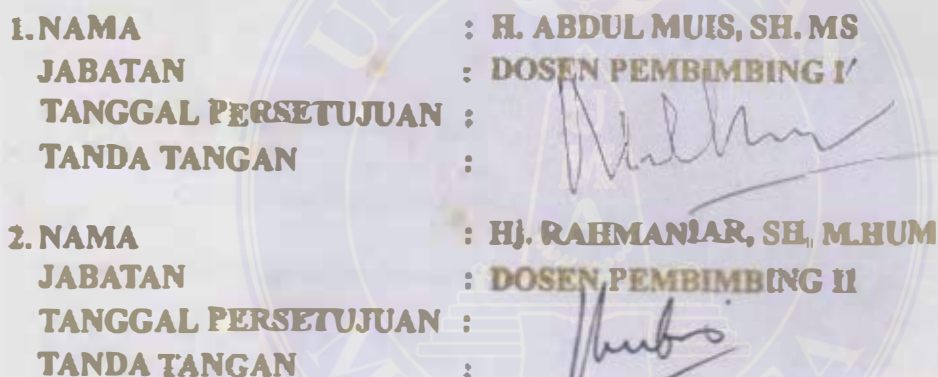 1. NAMA : H. ABDUL MUIS, SH. MS
JABATAN : DOSEN PEMBIMBING I
TANGGAL PERSETUJUAN :
TANDA TANGAN :
2. NAMA : Hj. RAHMANIAR, SH, M.HUM
JABATAN : DOSEN PEMBIMBING II
TANGGAL PERSETUJUAN :
TANDA TANGAN :